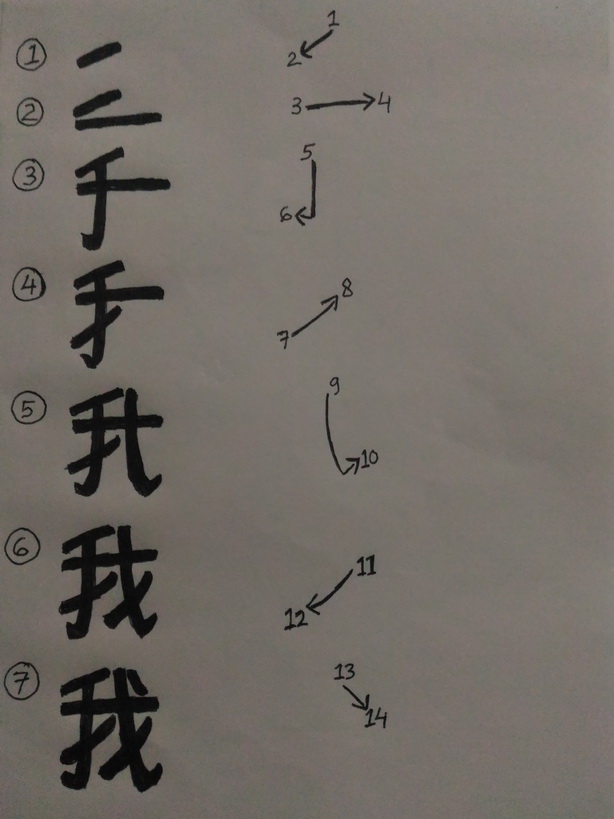 ① 1 2
② 3 4
③ 5 6
④ 7 8
⑤ 9 10
⑥ 11 12
⑦ 我 13 14